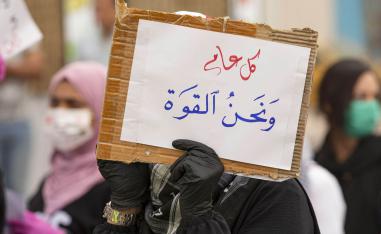 كل عام
وَنَحنُ القوَة